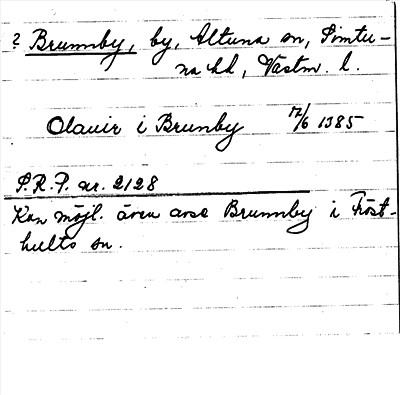 ? Brunnby, by, Altuna sn, Simtu-
na hd, Västm. l.
Olauir i Brunby 17/6 1385
S.R.P. nr. 2128
Kan möjl. även avse Brunnby i Fröst-
hults sn.